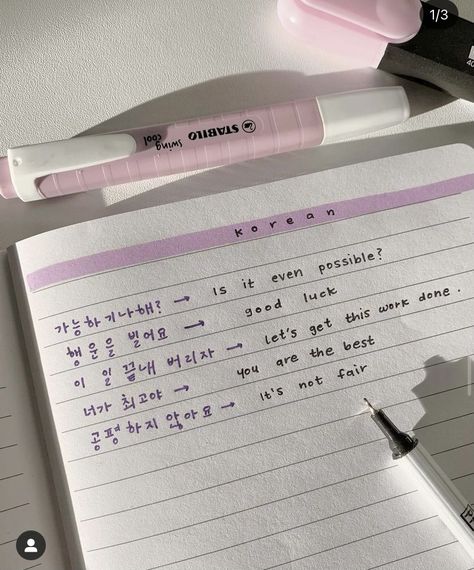 1/3
STABILO
swing cool
korean
가능하기나해? → Is it even possible?
행운을 빌어요 → good luck
이 일 끝내 버리자 → let's get this work done.
너가 최고야 → you are the best
공평하지 않아요 → It's not fair